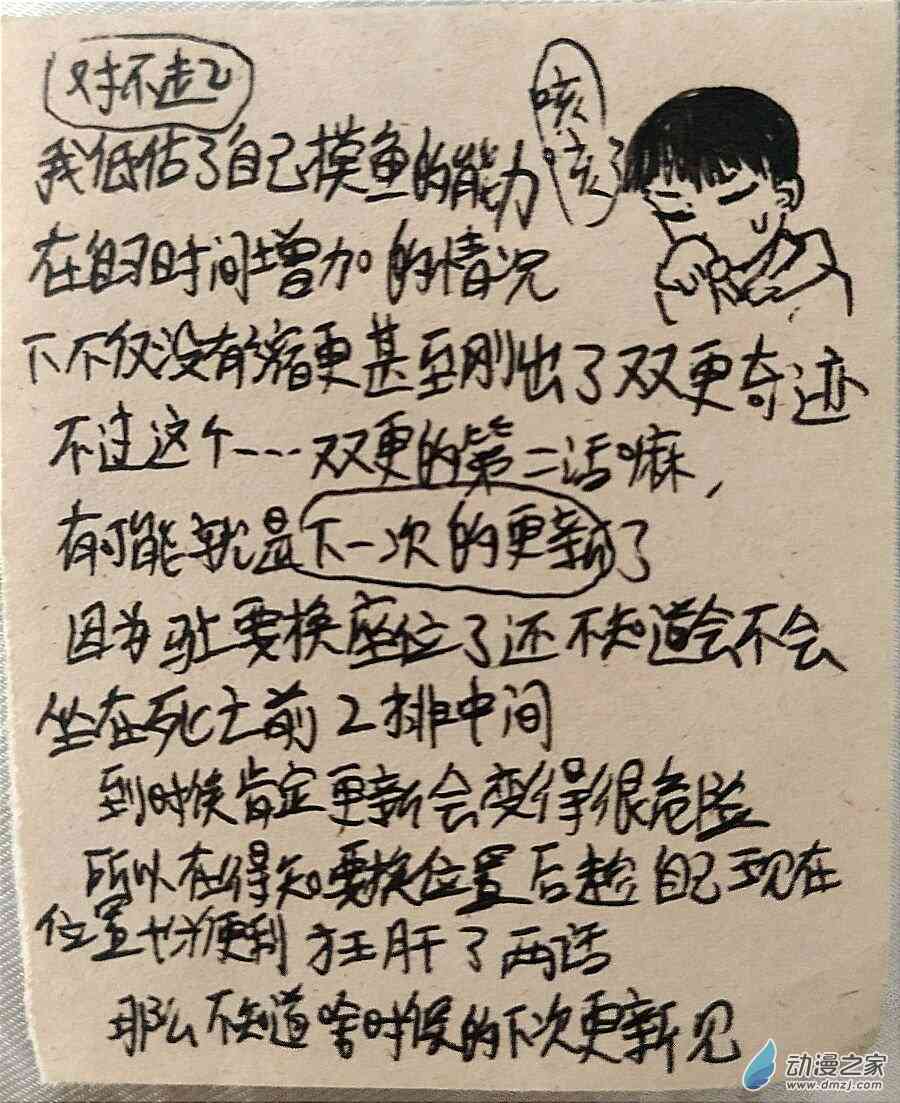 对不起
咳咳
我低估了自己摸鱼的能力了
在自习时间增加的情况
下不仅没有缩更甚至刚出了双更奇迹
不过这个----双更的第二话嘛，
有可能就是下一次的更新了
因为马上要换座位了还不知道会不会
坐在死亡前2排中间
到时候肯定更新会变得很危险
所以在得知要换位置后趁自己现在
位置十分便利狂肝了两话
那么不知道啥时候的下次更新见
动漫之家
www.dmzj.com